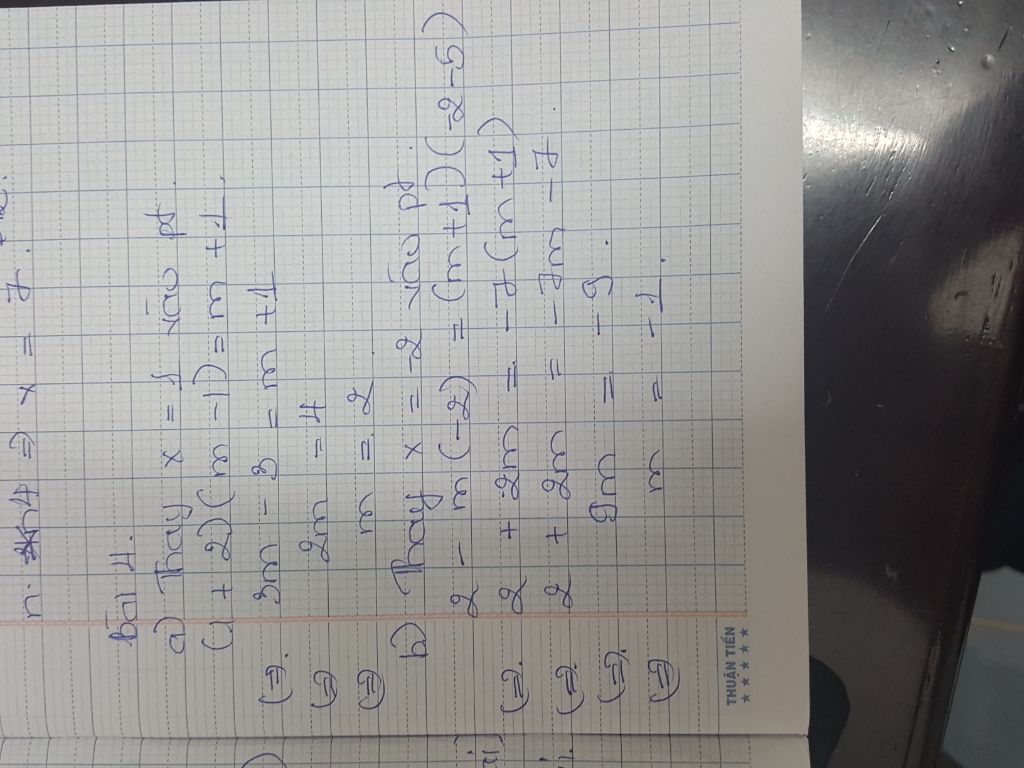 ⇒ x = 7.
Bài 4.
a) Thay x = 1 vào pt.
(1 + 2)(m - 1) = m + 1.
(⇒). 3m - 3 = m + 1
(⇒) 2m = 4
(⇒) m = 2.
b) Thay x = -2 vào pt.
2 - m(-2) = (m + 1)(-2 - 5)
(⇒). 2 + 2m = -7(m + 1)
(⇒). 2 + 2m = -7m - 7.
(⇒). 9m = -9.
(⇒) m = -1.
THUẬN TIẾN